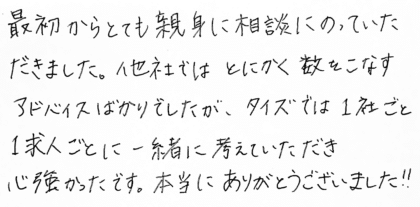 最初からとても親身に相談にのっていた
だきました。他社では とにかく 数をこなす
アドバイスばかりでしたが、タイズでは 1社ごと
1求人ごとに 一緒に 考えていただき
心強かったです。本当に ありがとうございました!!